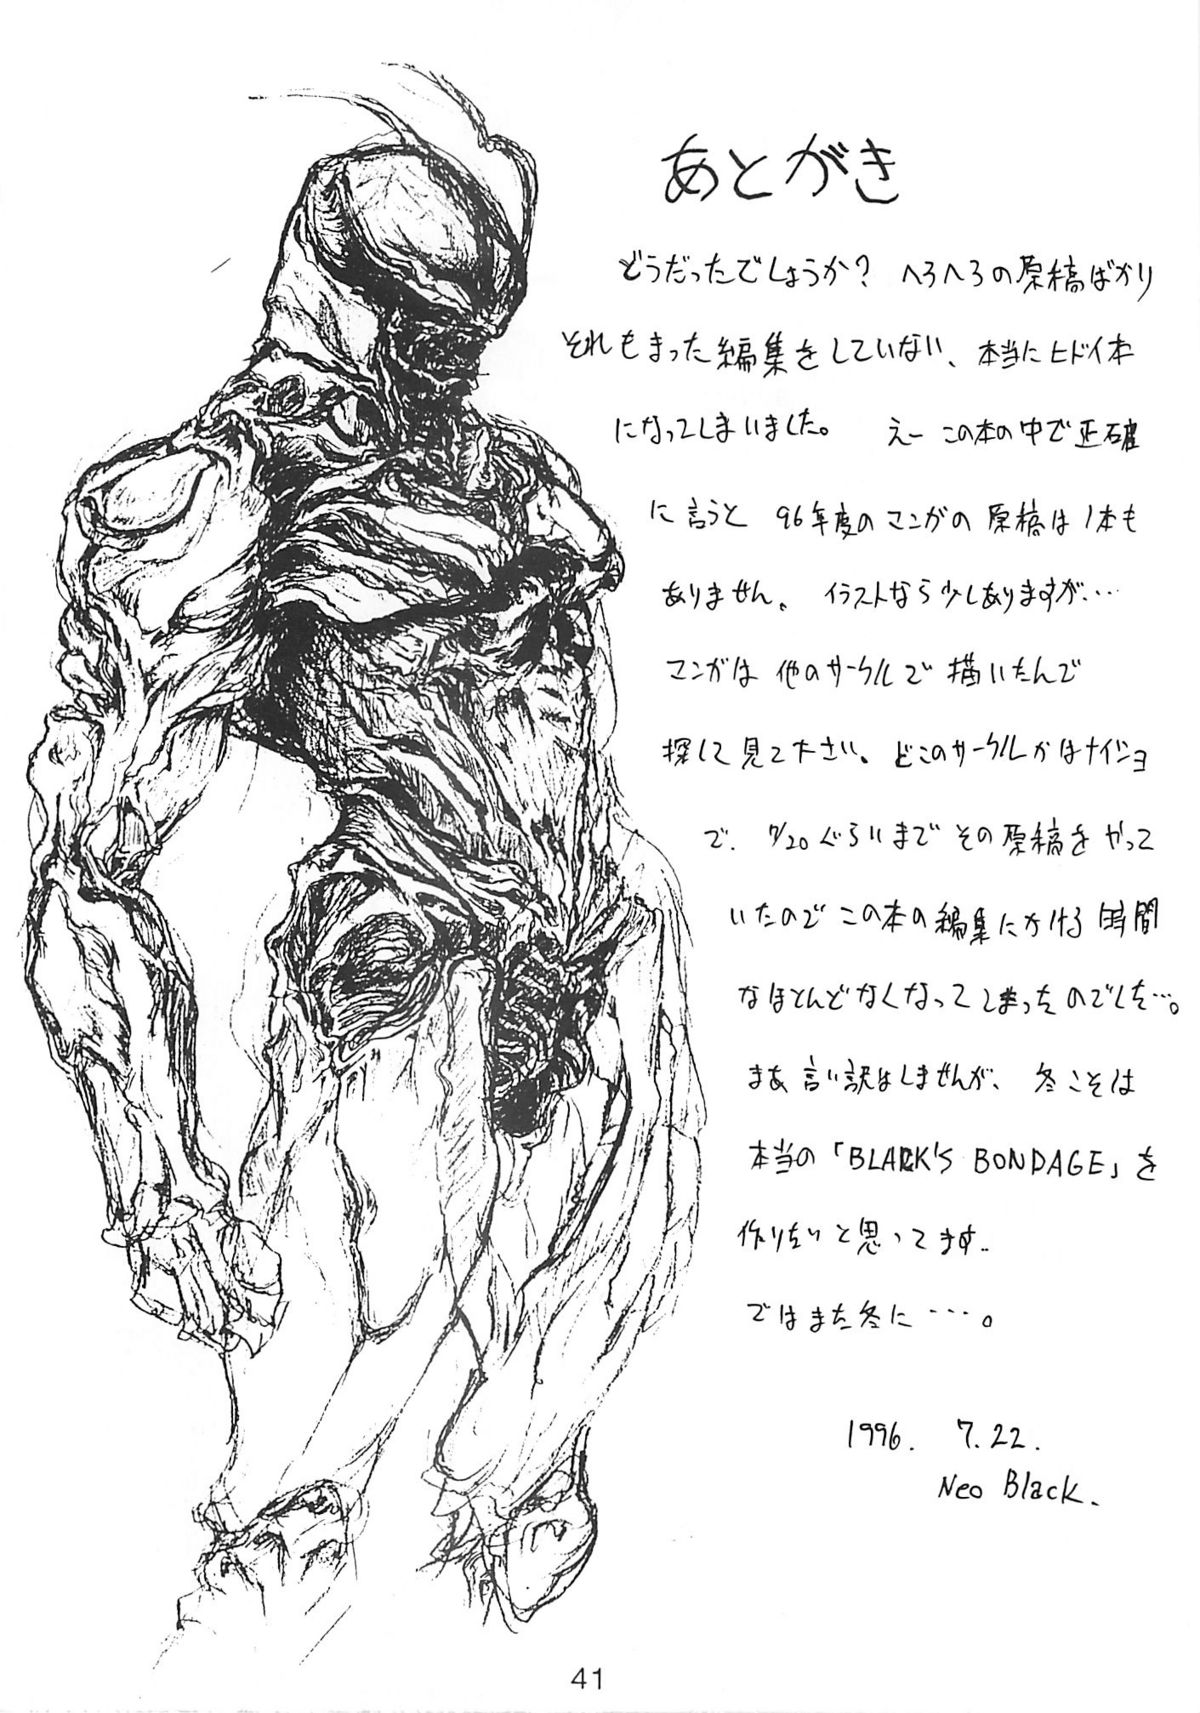 あとがき
どうだったでしょうか? へろへろの原稿ばかり
それもまった編集をしていない、本当にヒドイ本
になってしまいました。 えー この本の中で正確
に言うと 96年度のマンガの原稿は1本も
ありません。 イラストなら少しありますが…
マンガは 他のサークルで 描いたんで
探して見て下さい。どこのサークルかはナイショ
で. 7/20ぐらいまで その原稿を やって
いたので この本の編集にかける時間
なほとんどなくなってしまったのでした…。
まあ 言い訳はしませんが、 冬こそは
本当の「BLACK'S BONDAGE」を
作りたいと思ってます..
ではまた冬に …。
1996. 7.22.
Neo Black.
41